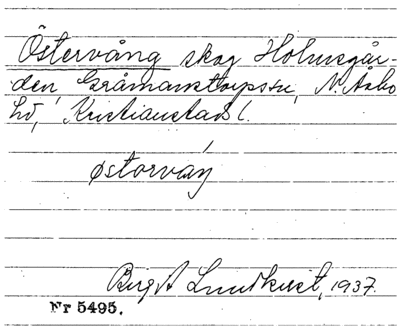 Östervång skog Holmsgår-
den, Gråmanstorps sn, N. Åsbo
hd, Kristianstads l.
østorváŋ
Birgit Lundkvist, 1937.
Nr 5495.